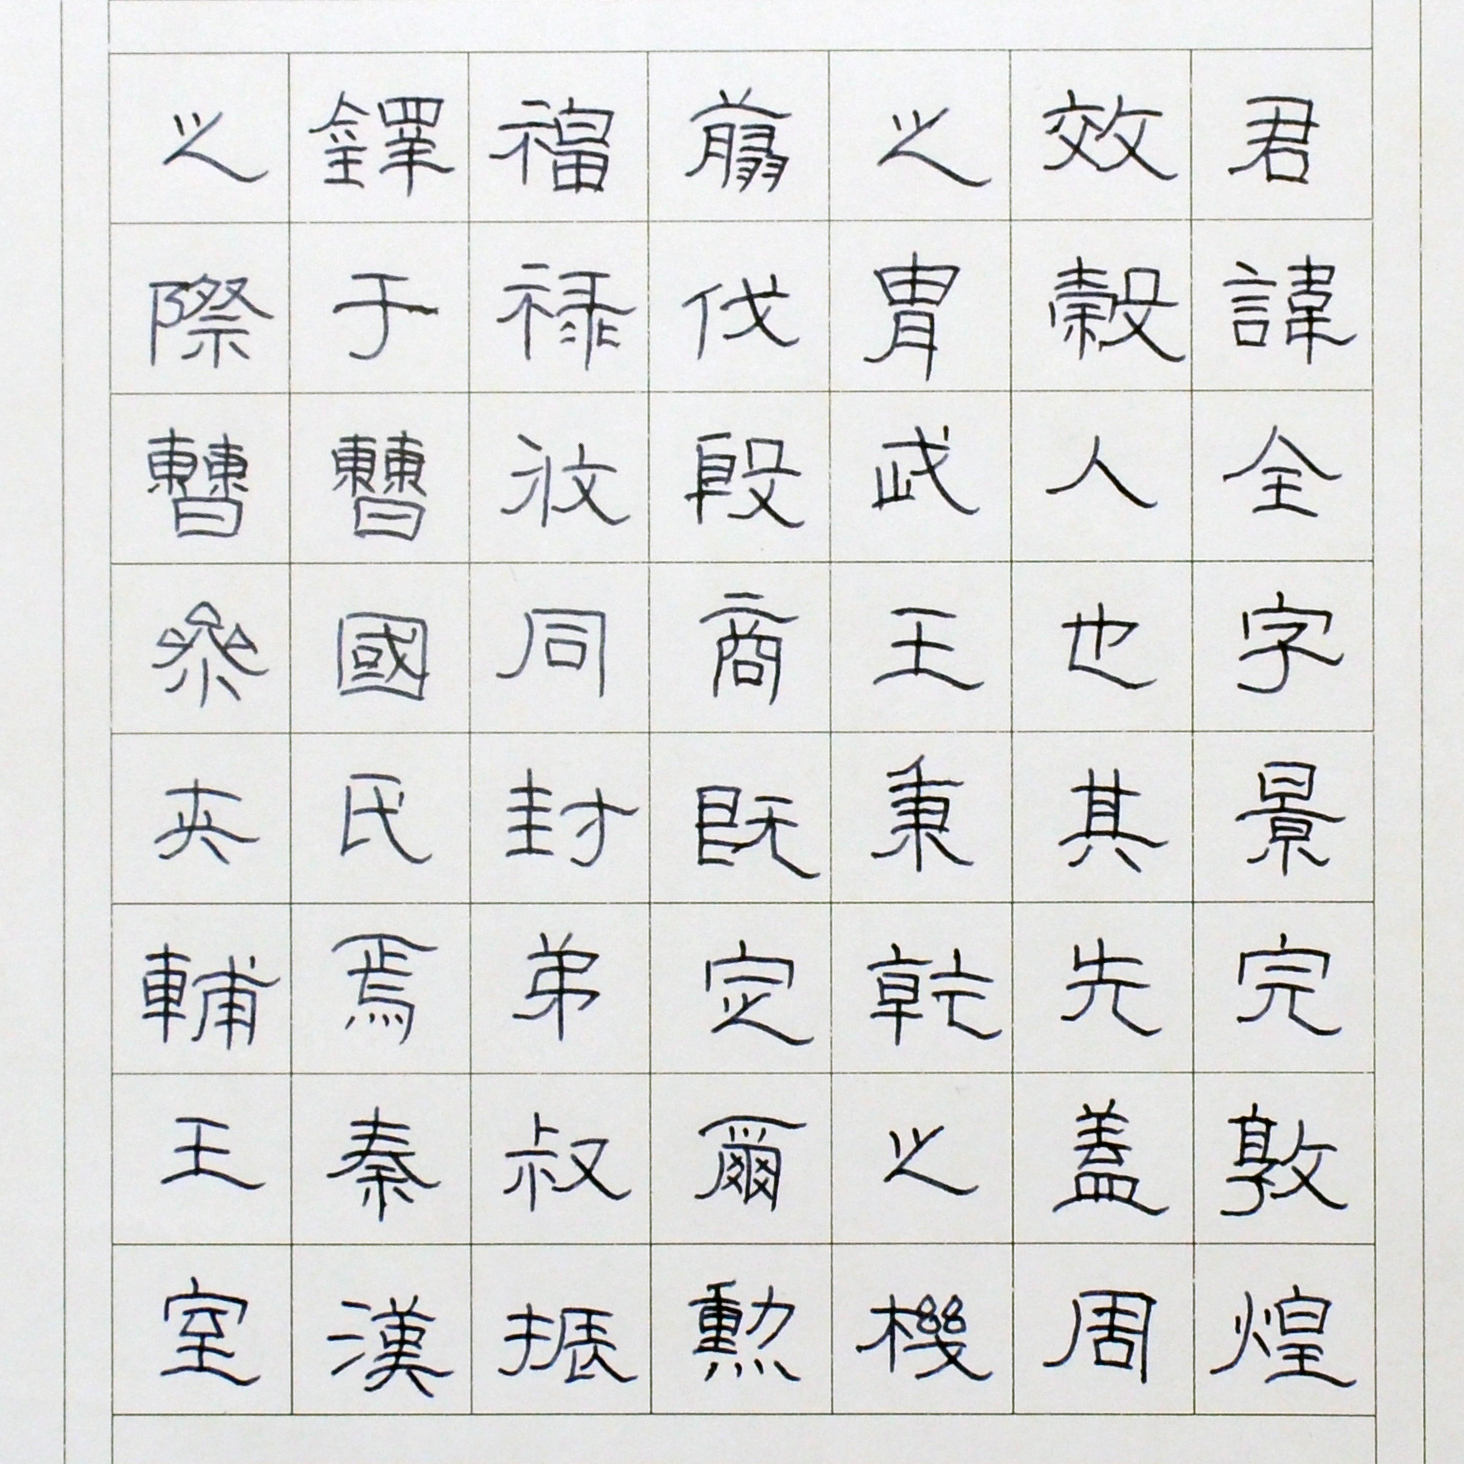 君諱全字景完敦煌
效穀人也其先蓋周
之胄武王秉乾之機
翦伐殷商既定爾勲
福禄攸同封弟叔振
鐸于曹國氏焉秦漢
之際曹參夾輔王室